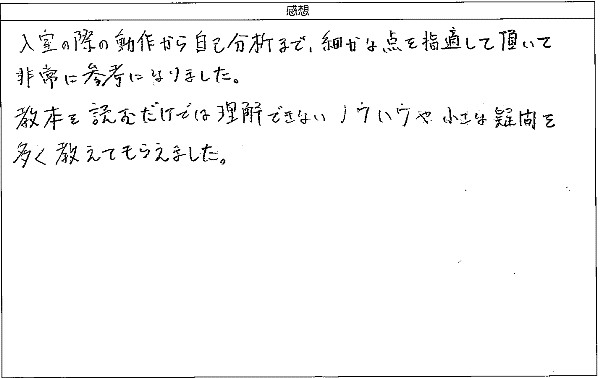 感想
入室の際の動作から自己分析まで、細かな点を指適して頂いて
非常に参考になりました。
教本を読むだけでは理解できないノウハウや小さな疑問を
多く教えてもらえました。